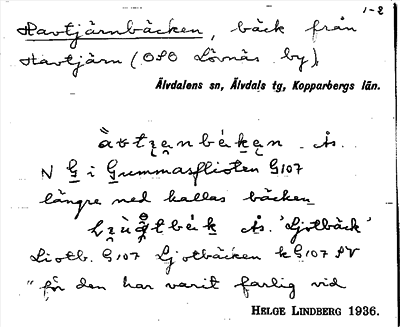 1-2
Havtjärnbäcken, bäck från
Havtjärn (OSO Lövnäs by)
Älvdalens sn, Älvdals tg, Kopparbergs län.
N G i Gummasflioten G107
längre ned kallas bäcken
"Ljotbäck"
Liotb. G107 Ljotbäcken k G107 SV
"för den har varit farlig vid
HELGE LINDBERG 1936.